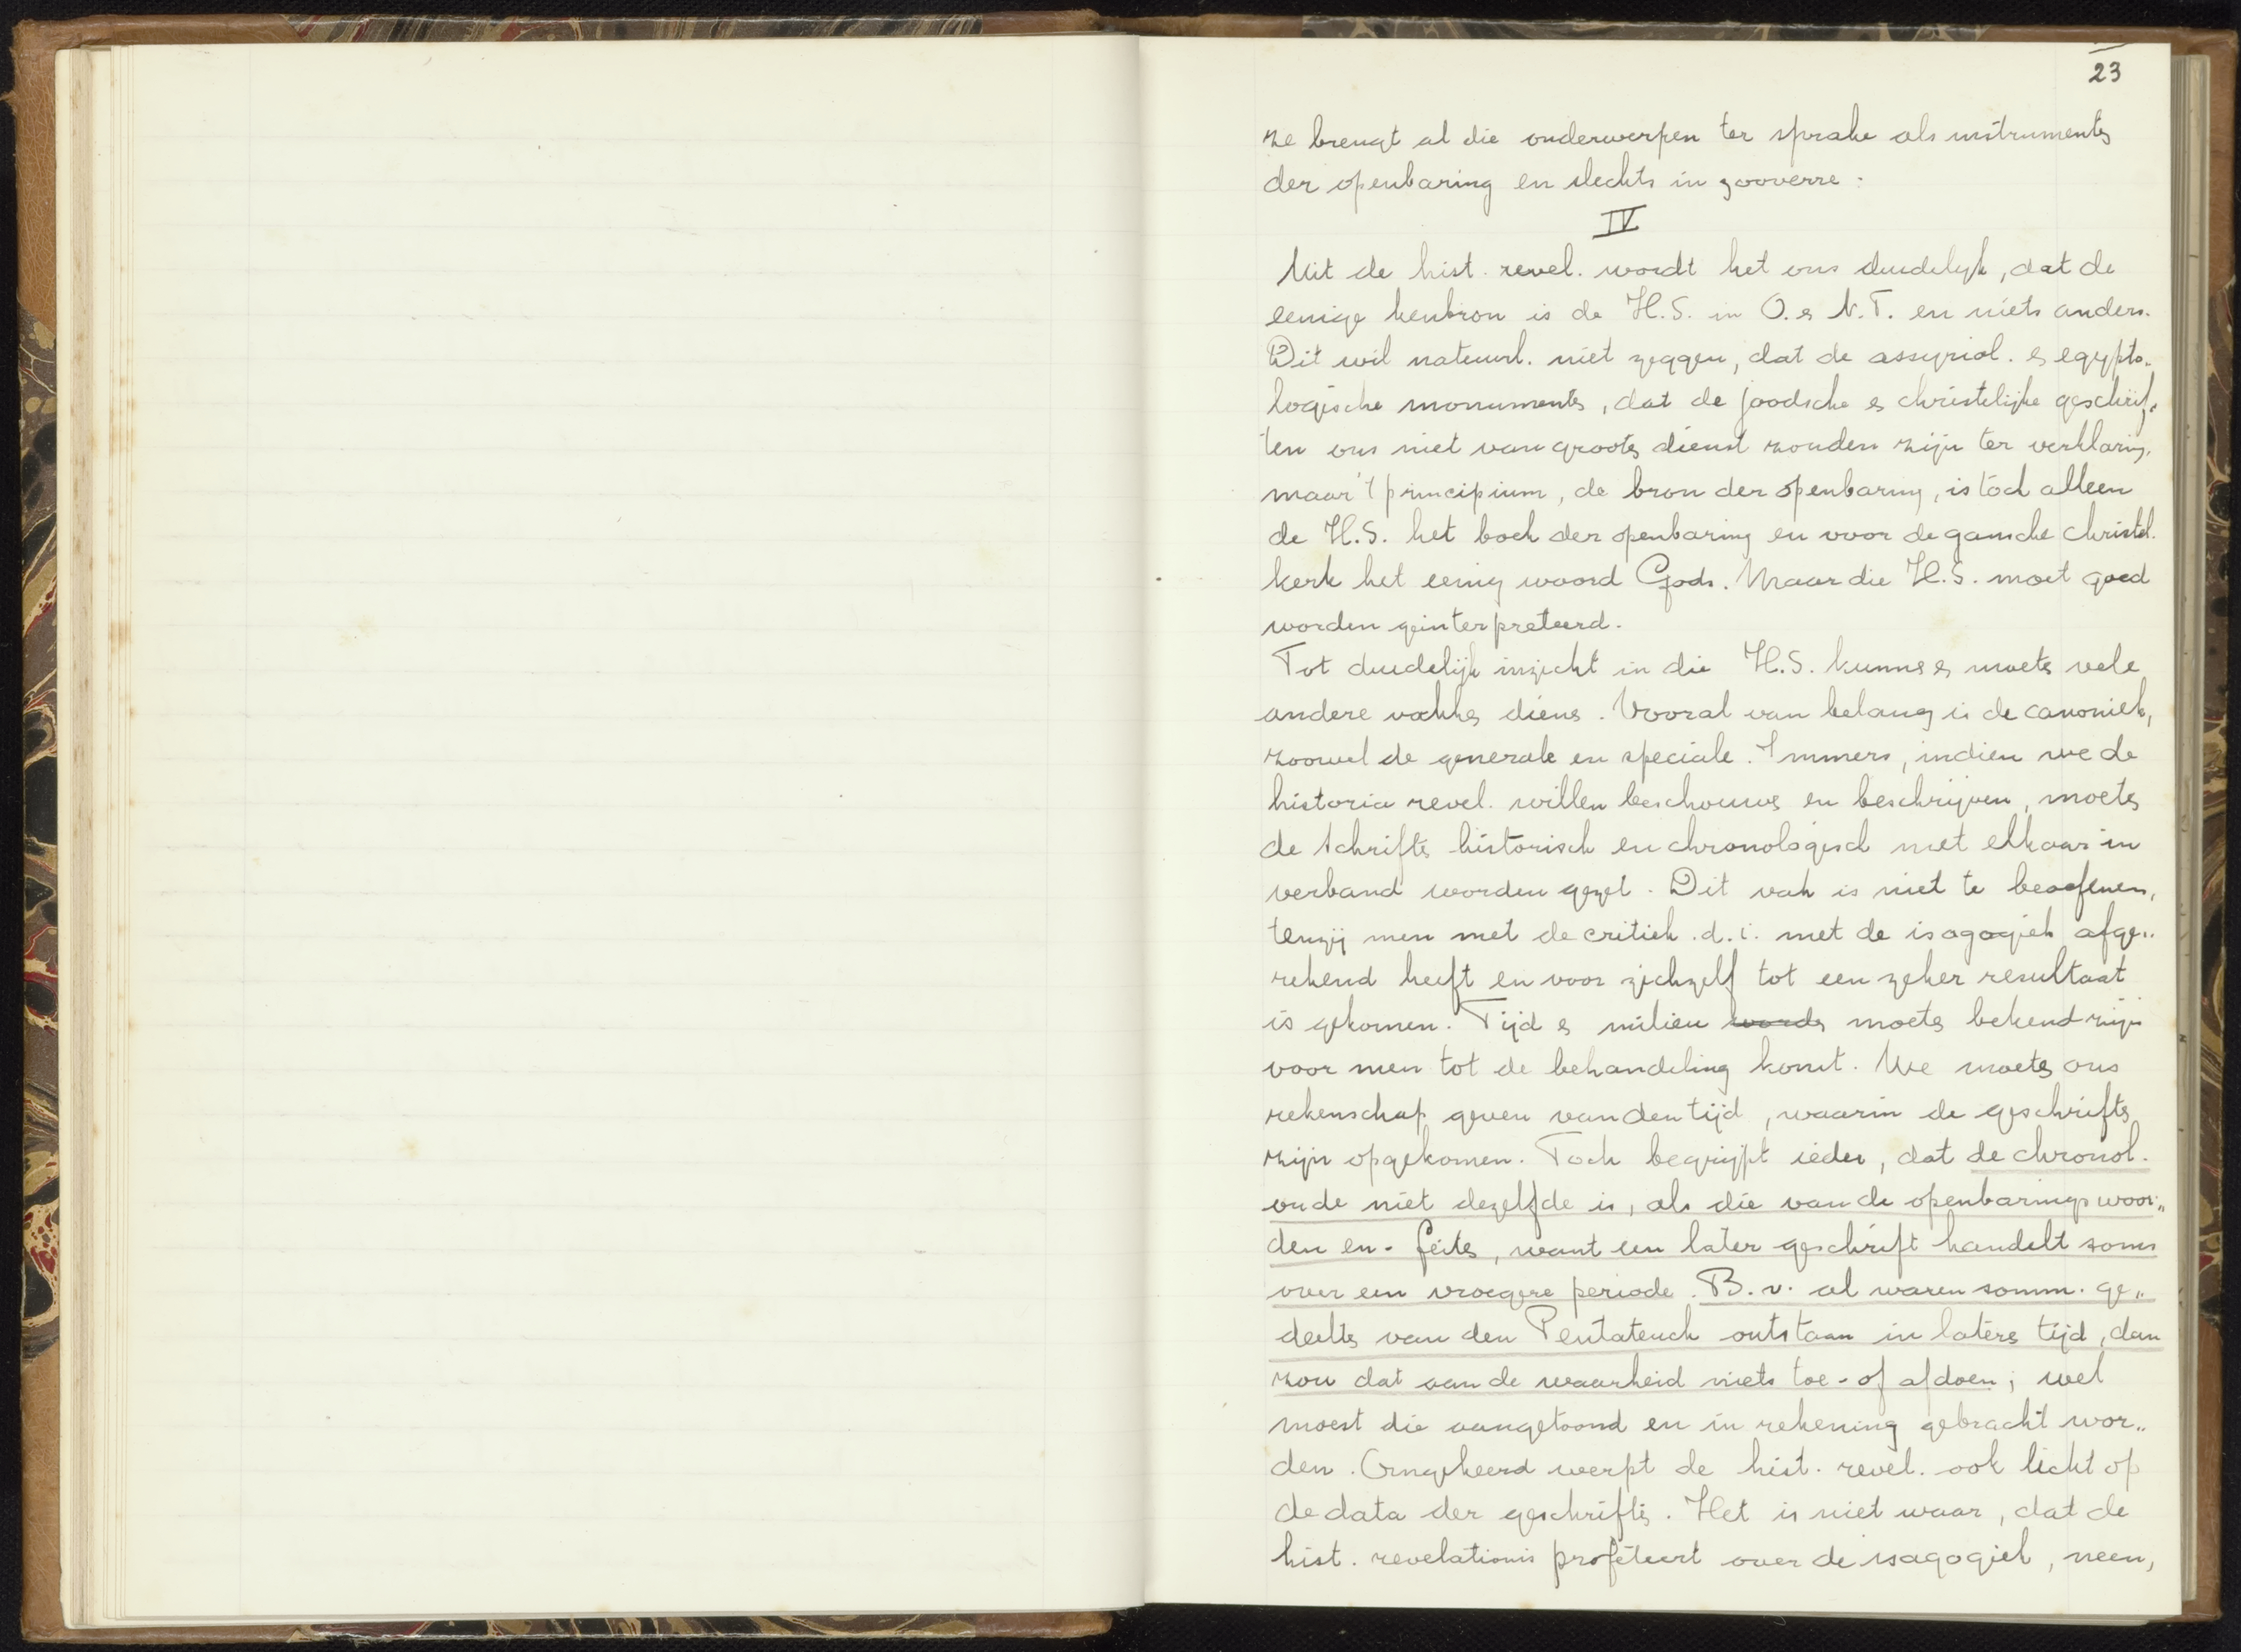 23
ze brengt al die onderwerpen ter sprake als instrumenten
der openbaring en slechts in zooverre.
IV
Uit de hist. revel. wordt het ons duidelijk, dat de
eenige kenbron is de H.S. in O. en N.T. en niets anders.
Dit wil natuurl. niet zeggen, dat de assyriol. en egypto„
logische monumenten, dat de joodsche en christelijke geschrif„
ten ons niet van grooten dienst zouden zijn ter verklaring,
maar 't principium, de bron der openbaring, is toch alleen
de H.S. het boek der openbaring en voor de gansche christel.
kerk het eenig woord Gods. Maar die H.S. moet goed
worden geinterpreteerd.
Tot duidelijk inzicht in die H.S. kunnen en moeten vele
andere vakken dienen. Vooral van belang is de canoniek,
zoowel de generale en speciale. Immers, indien we de
historia revel. willen beschouwen en beschrijven, moeten
de schriften historisch en chronologisch met elkaar in
verband worden gezet. Dit vak is niet te beoefenen,
tenzij men met de critiek .d.i. met de isagogiek afge„
rekend heeft en voor zichzelf tot een zeker resultaat
is gekomen. Tijd en milieu worden moeten bekend zijn
voor men tot de behandeling komt. We moeten ons
rekenschap geven van den tijd, waarin de geschriften
zijn opgekomen. Toch begrijpt ieder, dat de chronol.
orde niet dezelfde is, als die van de openbaringswoor„
den en - feiten, want een later geschrift handelt soms
over een vroegere periode. B.v. al waren somm. ge„
deelten van den Pentateuch ontstaan in lateren tijd, dan
zou dat aan de waarheid niets toe- of afdoen; wel
moest die aangetoond en in rekening gebracht wor„
den. Omgekeerd werpt de hist. revel. ook licht op
de data der geschriften. Het is niet waar, dat de
hist. revelationis profiteert over de isagogiek, neen,